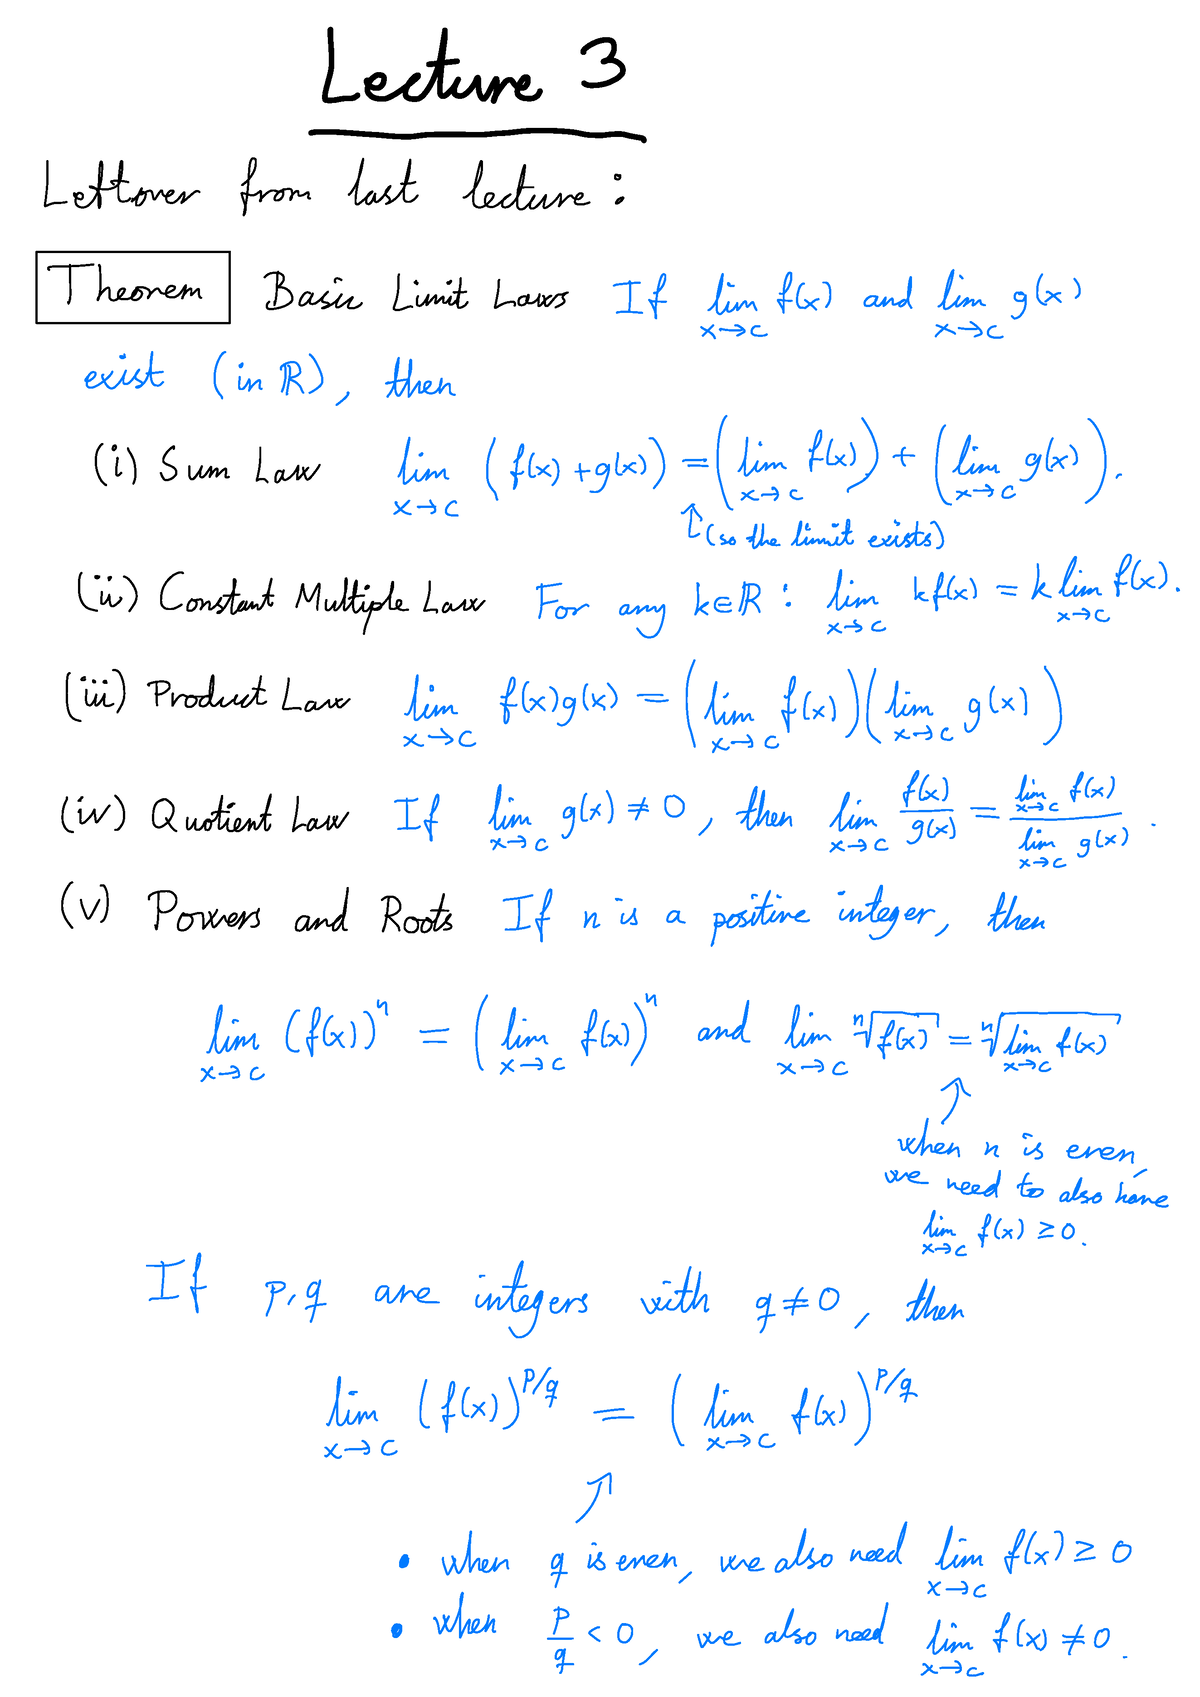 Lecture 3
Leftover from last lecture:
Theorem Basic Limit Laws If lim_{x→c} f(x) and lim_{x→c} g(x)
exist (in ℝ), then
(i) Sum Law lim_{x→c} (f(x)+g(x)) = (lim_{x→c} f(x)) + (lim_{x→c} g(x)).
↑(so the limit exists)
(ii) Constant Multiple Law For any k∈ℝ: lim_{x→c} kf(x) = k lim_{x→c} f(x).
(iii) Product Law lim_{x→c} f(x)g(x) = (lim_{x→c} f(x))(lim_{x→c} g(x))
(iv) Quotient Law If lim_{x→c} g(x) ≠ 0, then lim_{x→c} f(x)/g(x) = lim_{x→c} f(x) / lim_{x→c} g(x).
(v) Powers and Roots If n is a positive integer, then
lim_{x→c} (f(x))^n = (lim_{x→c} f(x))^n and lim_{x→c} ⁿ√f(x) = ⁿ√(lim_{x→c} f(x))
↑
when n is even,
we need to also have
lim_{x→c} f(x) ≥ 0.
If p,q are integers with q≠0, then
lim_{x→c} (f(x))^{p/q} = (lim_{x→c} f(x))^{p/q}
↑
• when q is even, we also need lim_{x→c} f(x) ≥ 0
• when p/q < 0, we also need lim_{x→c} f(x) ≠ 0.